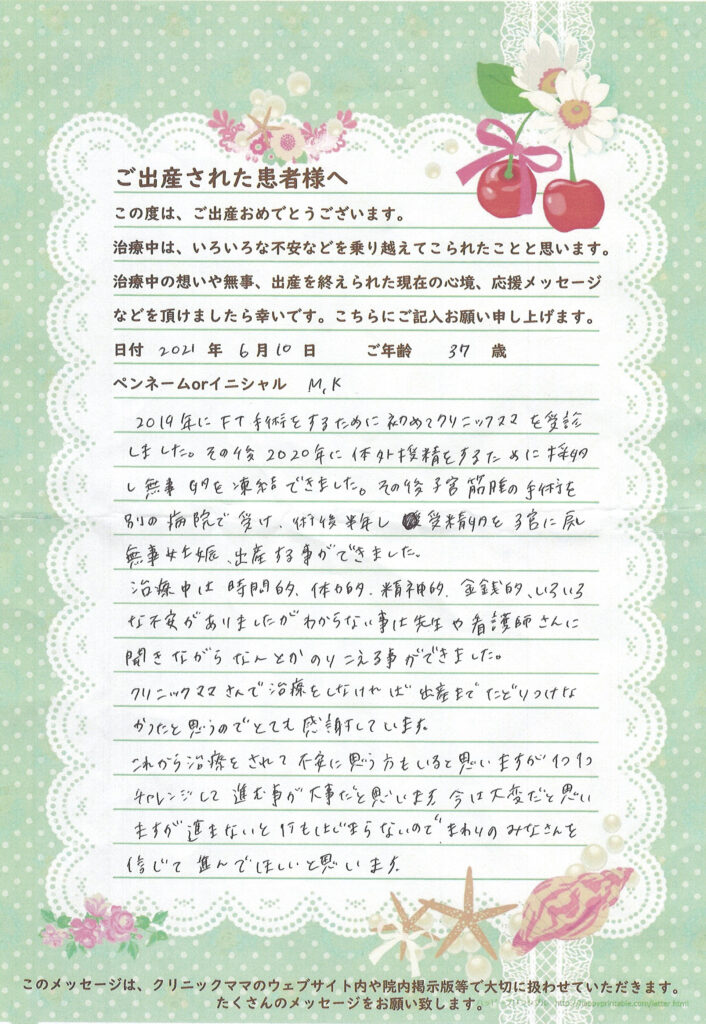 ご出産された患者様へ
この度は、ご出産おめでとうございます。
治療中は、いろいろな不安などを乗り越えてこられたことと思います。
治療中の想いや無事、出産を終えられた現在の心境、応援メッセージ
などを頂けましたら幸いです。こちらにご記入お願い申し上げます。
日付 2021 年 6 月 10 日 ご年齢 37 歳
ペンネームorイニシャル M,K
2019年にFT手術をするために初めてクリニックママを受診
しました。その後2020年に体外授精をするために採卵
し無事卵を凍結できました。その後子宮筋腫の手術を
別の病院で受け、術後半年し 受精卵を子宮に戻し
無事妊娠、出産する事ができました。
治療中は時間的、体力的、精神的、金銭的、いろいろ
な不安がありましたがわからない事は先生や看護師さんに
聞きながらなんとかのりこえる事ができました。
クリニックママさんで治療をしなければ出産までたどりつけな
かったと思うのでとても感謝しています。
これから治療をされて不安に思う方もいると思いますが1つ1つ
チャレンジして進む事が大事だと思います。今は大変だと思い
ますが進まないと何もはじまらないのでまわりのみなさんを
信じて進んでほしいと思います。
このメッセージは、クリニックママのウェブサイト内や院内掲示版等で大切に扱わせていただきます。
たくさんのメッセージをお願い致します。
http://happyprintable.com/letter.html